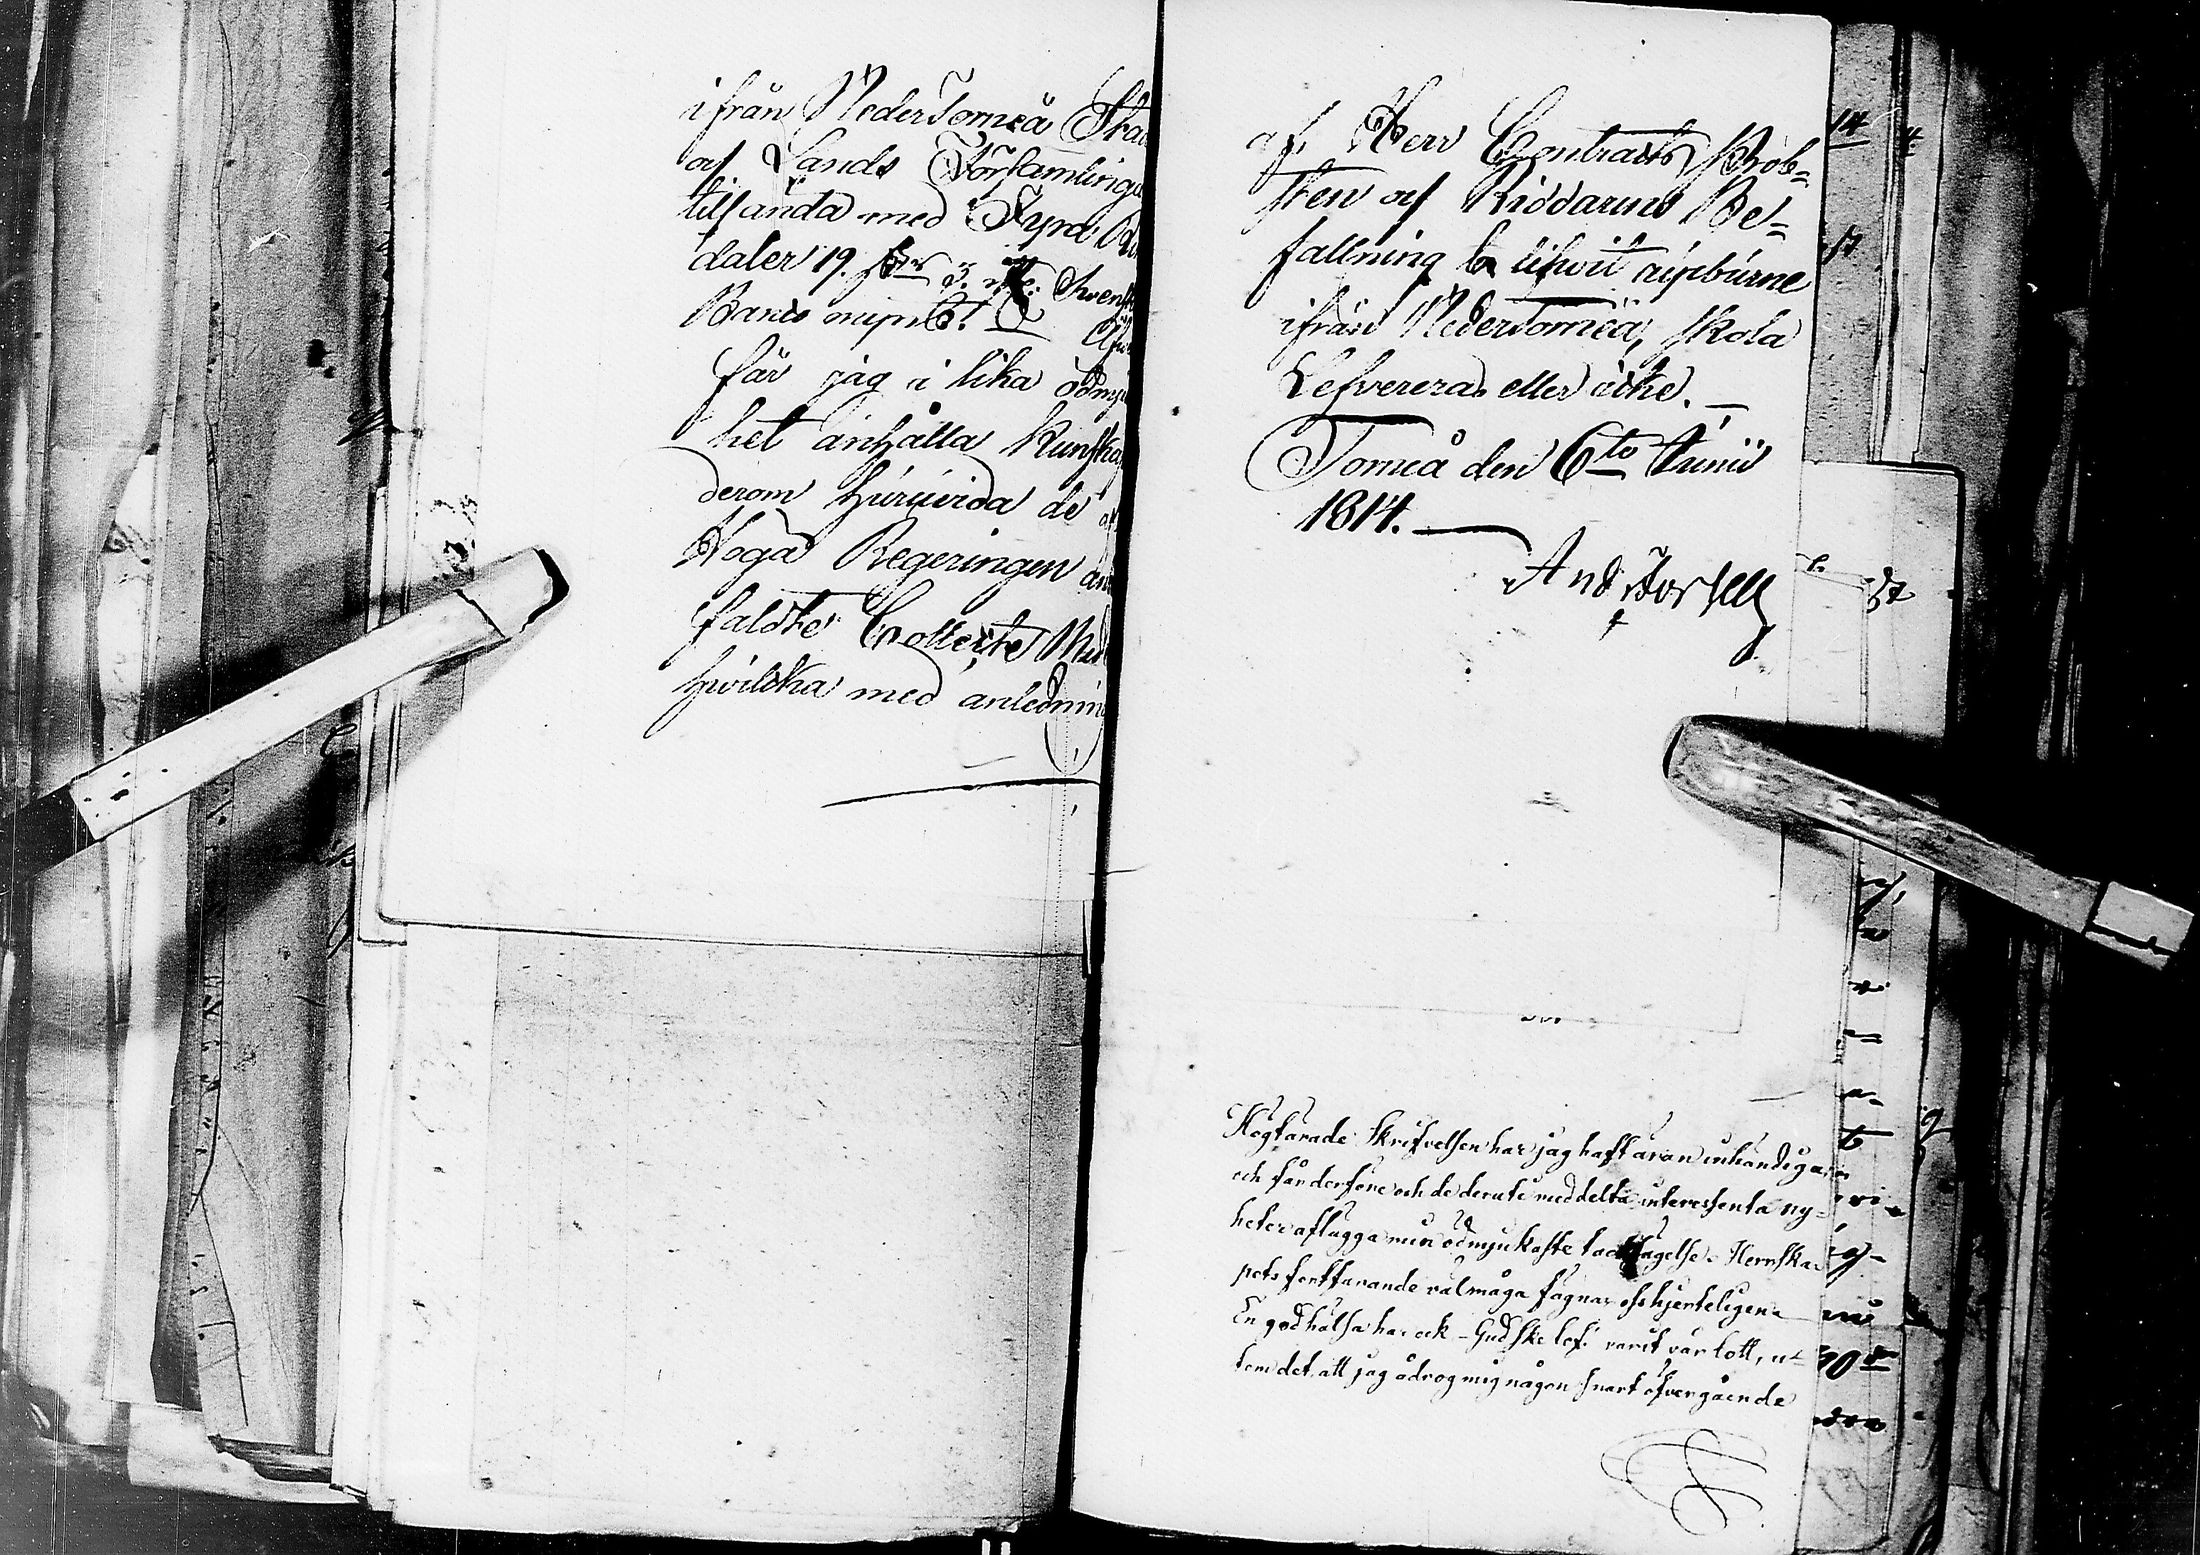 ifrån NederTorneå Sta
och Lands Församlinga
till ända med Fyra
daler 19. 3. Svensk
Banco mynt!
får jag i lika ödmju
het anhålla kunska
derom huruvida de
Höga Regeringen an
faldte Collecte Med
hvilcka med anlednin
af Herr Contracts Prob-
sten och Riddarens Be-
fallning blifvit upburne
ifrån NederTorneå, skola
Lefvereras eller icke. —
Torneå den 6te Junii
1814. —
And Forsell
Högtärade Skrifvelsen har jag haft äran inhändiga,
och får derföre och de deruti meddelta interessenta ny-
heter aflägga min ödmjukaste tacksägelse. Herrska-
pets fortfarande välmåga fägnar oss hjerteligen.
En god hälsa har ock - Gud ske lof! varit vår lott, u-
tom det, att jag ådrog mig någon snart öfvergående